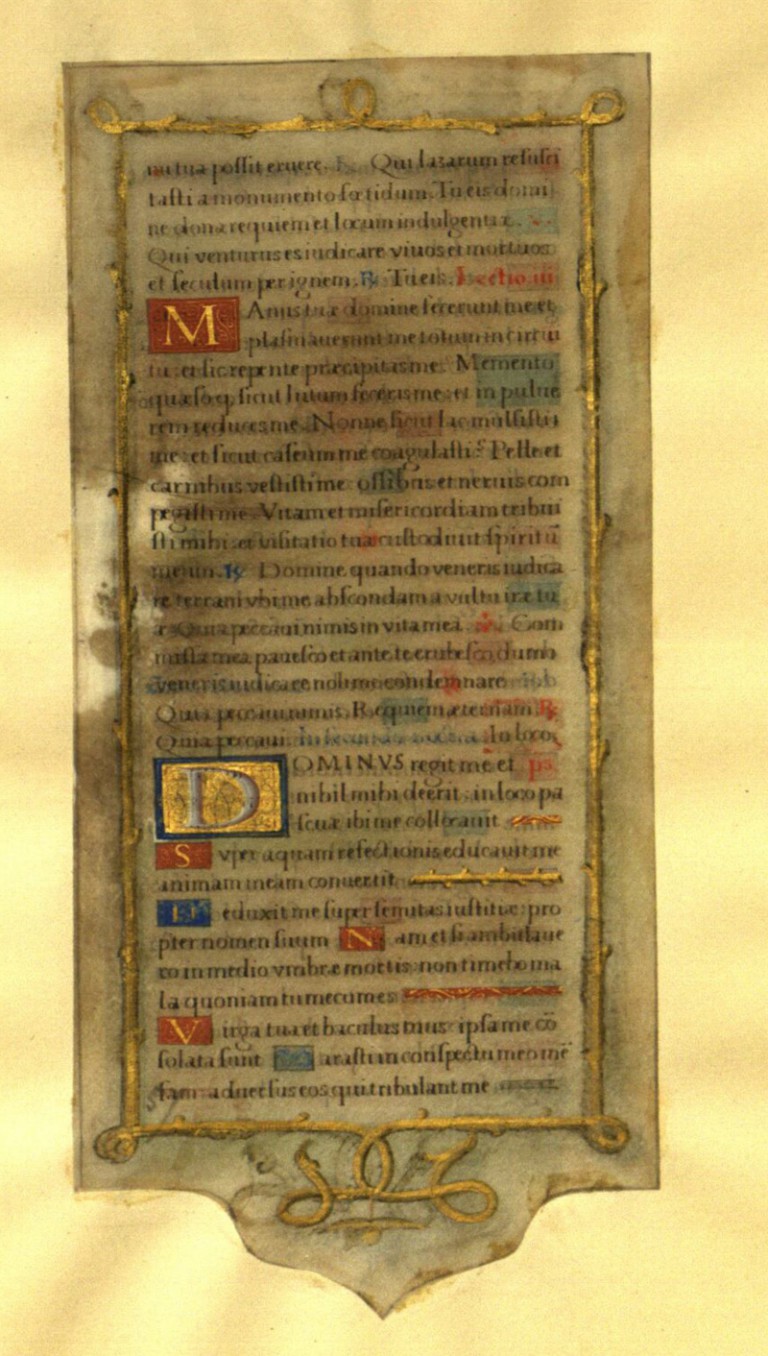 nu tua possit eruere. Qui lazarum resusci
tasti a monumento fœtidum. Tu eis domi
ne dona requiem et locum indulgentiæ.
Qui venturus es iudicare viuos et mortuos
et seculum per ignem. ℟. Tu eis. Lectio iii
MAnus tuæ domine fecerunt me et
plasmauerunt me totum in circui
tu: et sic repente præcipitas me. Memento
quæso q sicut lutum feceris me: et in pulue
rem reduces me. Nonne sicut lac mulsisti
me: et sicut caseum me coagulasti? Pelle et
carnibus vestisti me: ossibus et neruis com
pegisti me. Vitam et misericordiam tribui
sti mihi: et visitatio tua custodiuit spiritū
meum. ℟ Domine quando veneris iudica
re terram vbi me abscondam a vultu iræ tu
æ Quia peccaui nimis in vita mea. Com
missa mea pauesco et ante te erubesco, dum
veneris iudicare noli me condemnare
Quia peccaui nimis. Requiem æternam. ℟
Quia peccaui. In loco.
DOMINVS regit me et ps.
nihil mihi deerit: in loco pa
scuæ ibi me collocauit
Svper aquam refectionis educauit me
animam meam conuertit.
Deduxit me super semitas iustitiæ: pro
pter nomen suum Nam et si ambulaue
ro in medio vmbræ mortis: non timebo ma
la quoniam tu mecum es:
Virga tua et baculus tuus: ipsa me cō
solata sunt Parasti in conspectu meo mē
sam: aduersus eos qui tribulant me